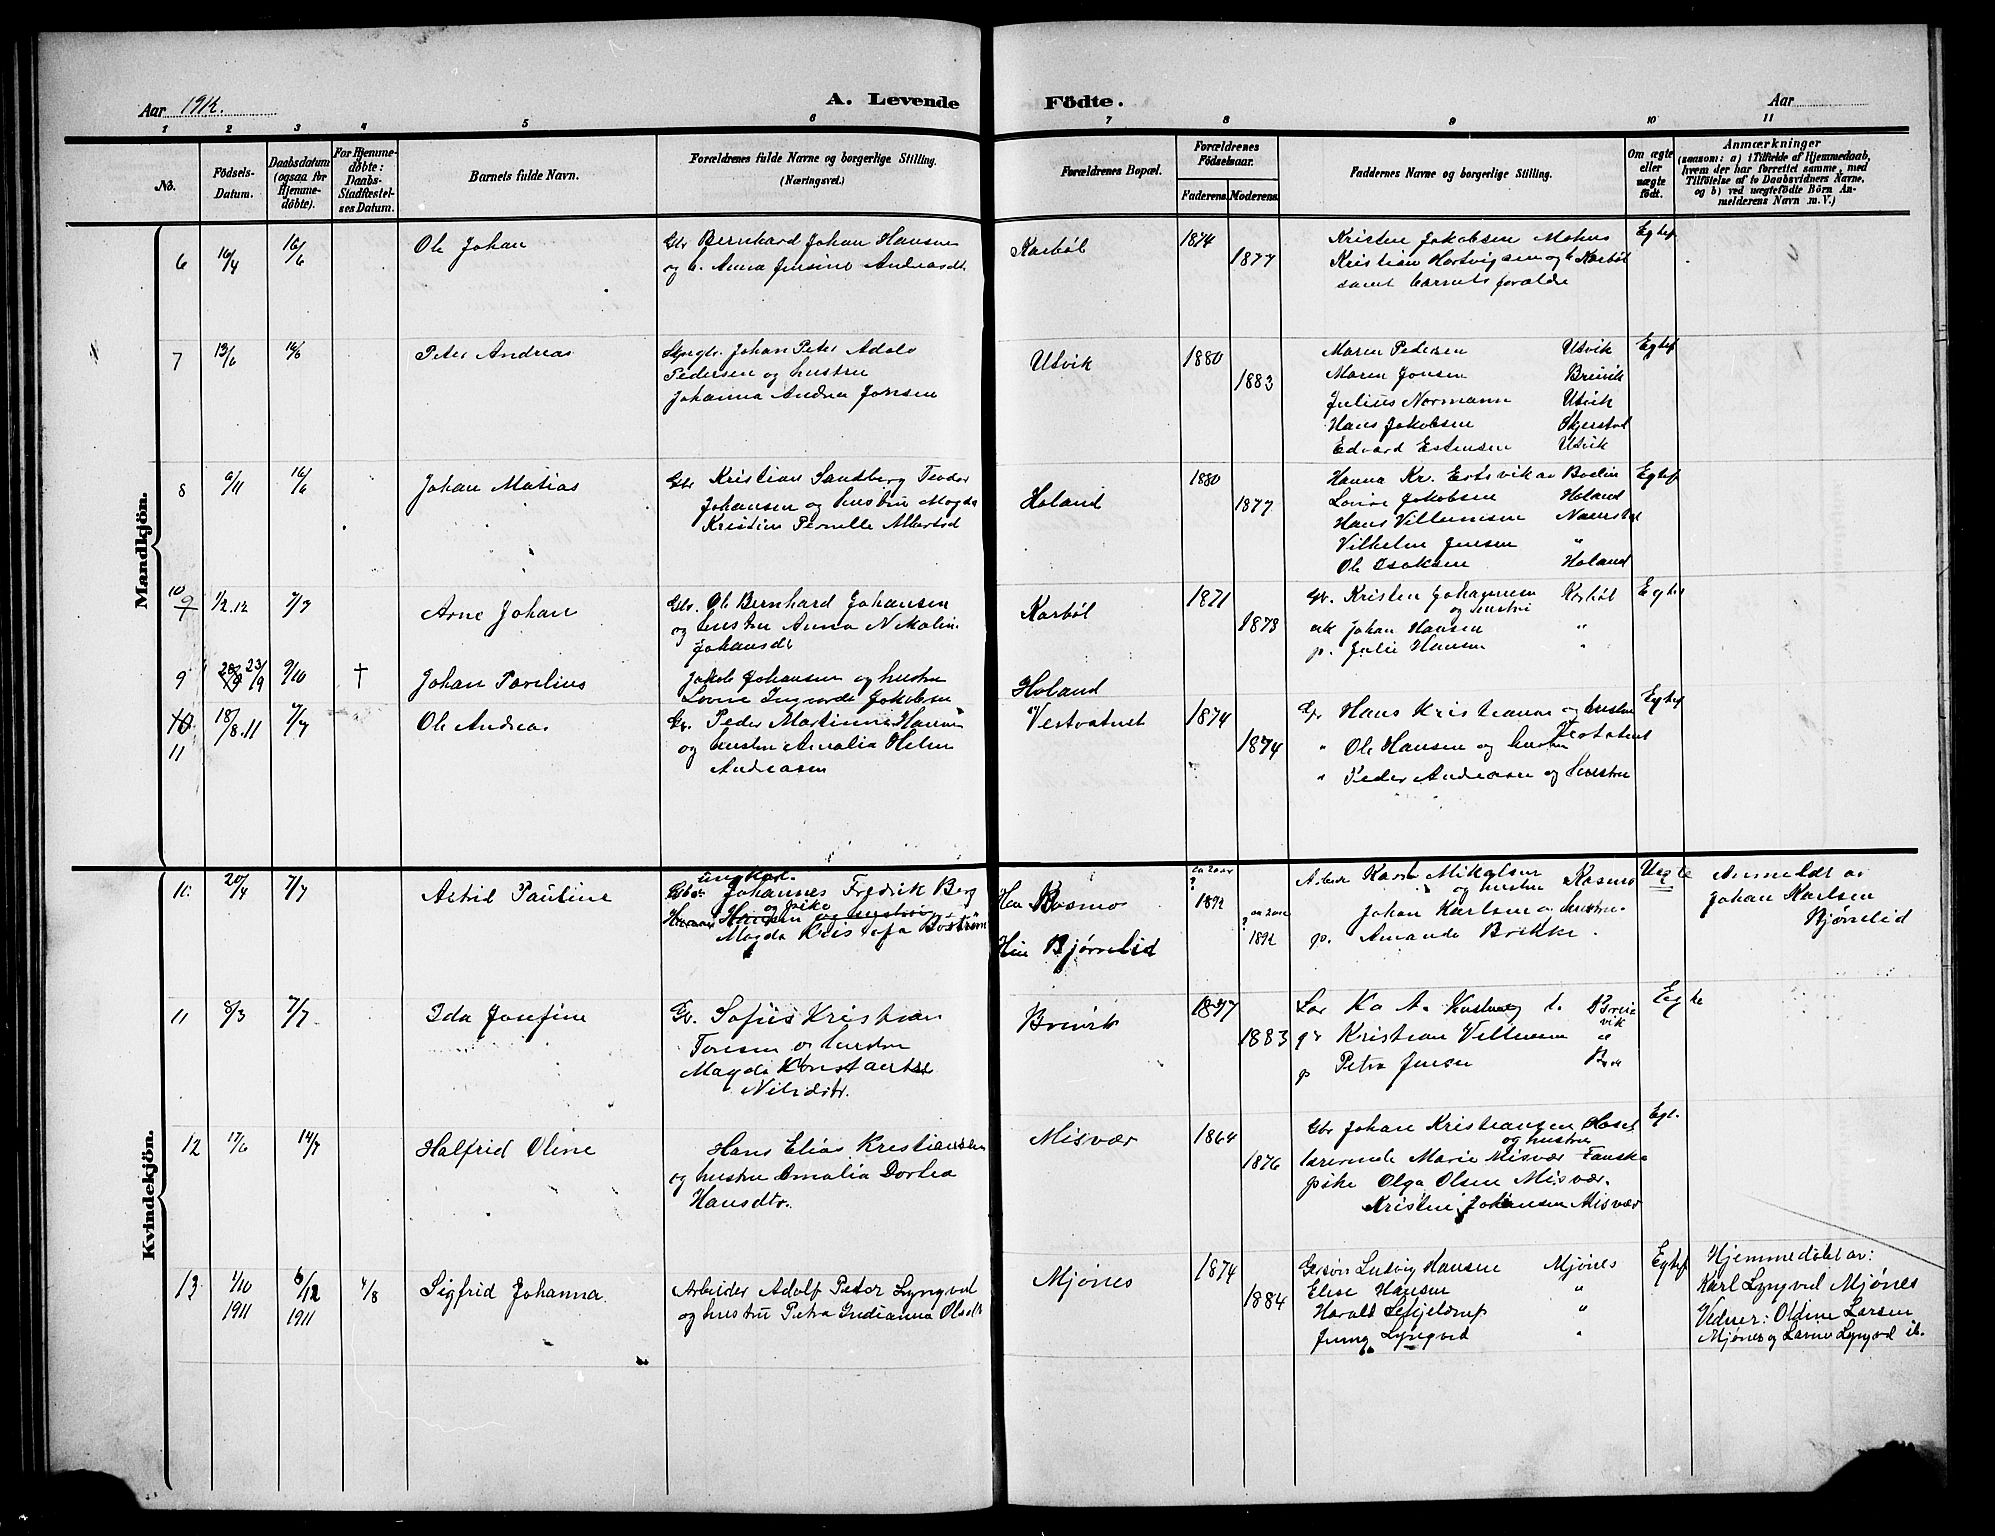 Aar 1912.
A. Levende
Födte.
Aar
1 2 3 4 5 6 7 8 9 10 11
No.
Födsels-
Datum.
Daabsdatum
(ogsaa for
Hjemme-
döbte).
For Hjemme-
døbte:
Daabs-
Stadfæstel-
ses Datum.
Barnets fulde Navn.
Forældrenes fulde Navne og borgerlige Stilling.
(Næringsvei.)
Forældrenes Bopæl.
Forældrenes
Födselsaar.
Faderens. Moderens.
Faddernes Navne og borgerlige Stilling.
Om ægte
eller
uægte
födt.
Anmærkninger
(saasom: a) i Tilfælde af Hjemmedaab,
hvem der har forrettet samme, med
Tilföielse af to Daabsvidners Navne,
og b) ved uægtefödte Börn An-
melderens Navn m. V.)
Mandkjön.
6 16/4 16/6 Ole Johan
Gbr Bernhard Johan Hansen
og h. Anna Jensine Andreasdt.
Karbøl 1874 1877
Kristen Jokobsen Mohus
Kristian Hartvigsen og h Karbøl
samt barnets forældre
Egtef
7 13/6 16/6 Peter Andreas
Johan Peter Adolo
Pedersen og hustru
Johanna Andrea Jonsen
Utvik 1880 1883
Maren Pedersen Utvik
Maren Jonsen Breivik
Julius Normann Utvik
Hans Jakobsen Skjerstad
Edvard Estensen Utvik
Egtef
8 6/11 16/6 Johan Matias
Gbr Kristian Sandberg Teodor
Johansen og hustru Magda
Kristine Pernille Albertsd
Holand 1880 1877
Hanna Kr. Bodin
Lovise Jakobsen Holand
Hans Villumsen
Vilhelm Jensen "
Ole Isaksen Holand
Egtef
10 9 1/2.12 7/7 Arne Johan
Gbr. Ole Bernhard Johansen
og hustru Anna Nikoline
Johansdt
Karbøl 1871 1873
Gb. Kristen Johannesen Karbøl
og hustru
Johan Hansen "
p. Julie Hansen "
Egtef
9 23/9 9/10 † Johan Parelius
Jakob Johansen og hustru
Jakobsen
Holand
10 11 18/8.11 7/7 Ole Andreas
Gb. Peder Martinus Hansen
og hustru Amalia Helene
Andreasen
Vestvatnet 1874 1874
Hans Kristiansen og hustru
Vestvatnet
" Ole Hansen og hustru
" Peder Andreasen og hustru
Egtef
Kvindekjön.
10. 20/4 7/7 Astrid Pauline
ungkar.
Johannes Fredrik Berg
og pike
Hansen og hustru
Magda Kristofa Boström
Han Bosmo
Hun Bjørnelid
1892 1892
Karl Mikalsen Rosmo
og hustru
Johan Karlsen og hustru
p. Amanda Brekke.
Uegte
Anmeldt av
Johan Karlsen
Bjørnelid
11 8/3 7/7 Ida Josefine
Gb. Sofus Kristian
Toresen og hustru
Magda Konstantse
Nilsdtr.
Breivik 1877 1883
Kristian Villumsen
p Petra Jensen
Egte
12 17/6 14/7 Halfrid Oline
Hans Elias Kristiansen
og hustru Amalia Dorthea
Hansdtr.
Misvær 1864 1876
Gbr Johan Kristiansen
og hustru
lærerinde Marie Misvær Fauske
pike Olga Olsen Misvær.
Kristine Johansen Misvær
Egt.
13 1/10 1911 6/12 1911 4/8 Sigfrid Johanna.
Arbeider Adolf Peter Lyngved
og hustru Petra Indianna Olsdt
Mjønes 1874 1884
Gersón Ludvig Hansen Mjønes
Elise Hansen "
Harald Lefjeldrup "
Jenny Lyngved "
Egtef
Hjemmedøbt av:
Karl Lyngved Mjønes
Vidner: Oldine Larsen
Mjønes og Larine Lyngved ib.